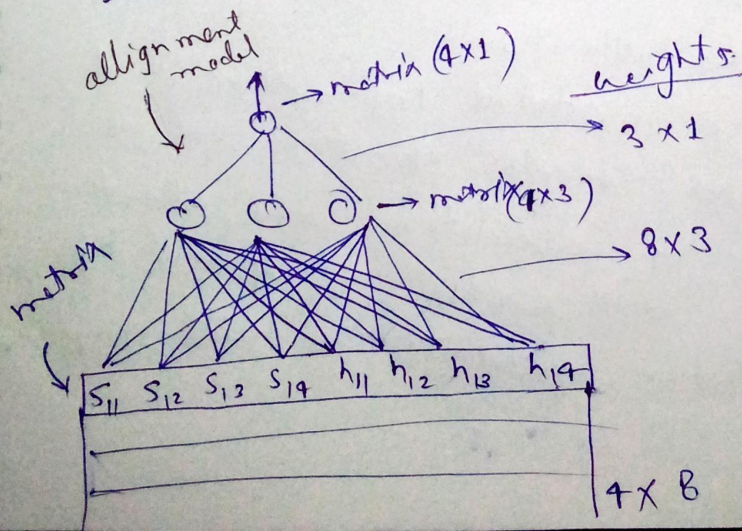 allignment
model
matrix (4x1)
weights.
3 x 1
matrix(4x3)
8 x 3
matrix
S11 S12 S13 S14 h11 h12 h13 h14
4 x 8